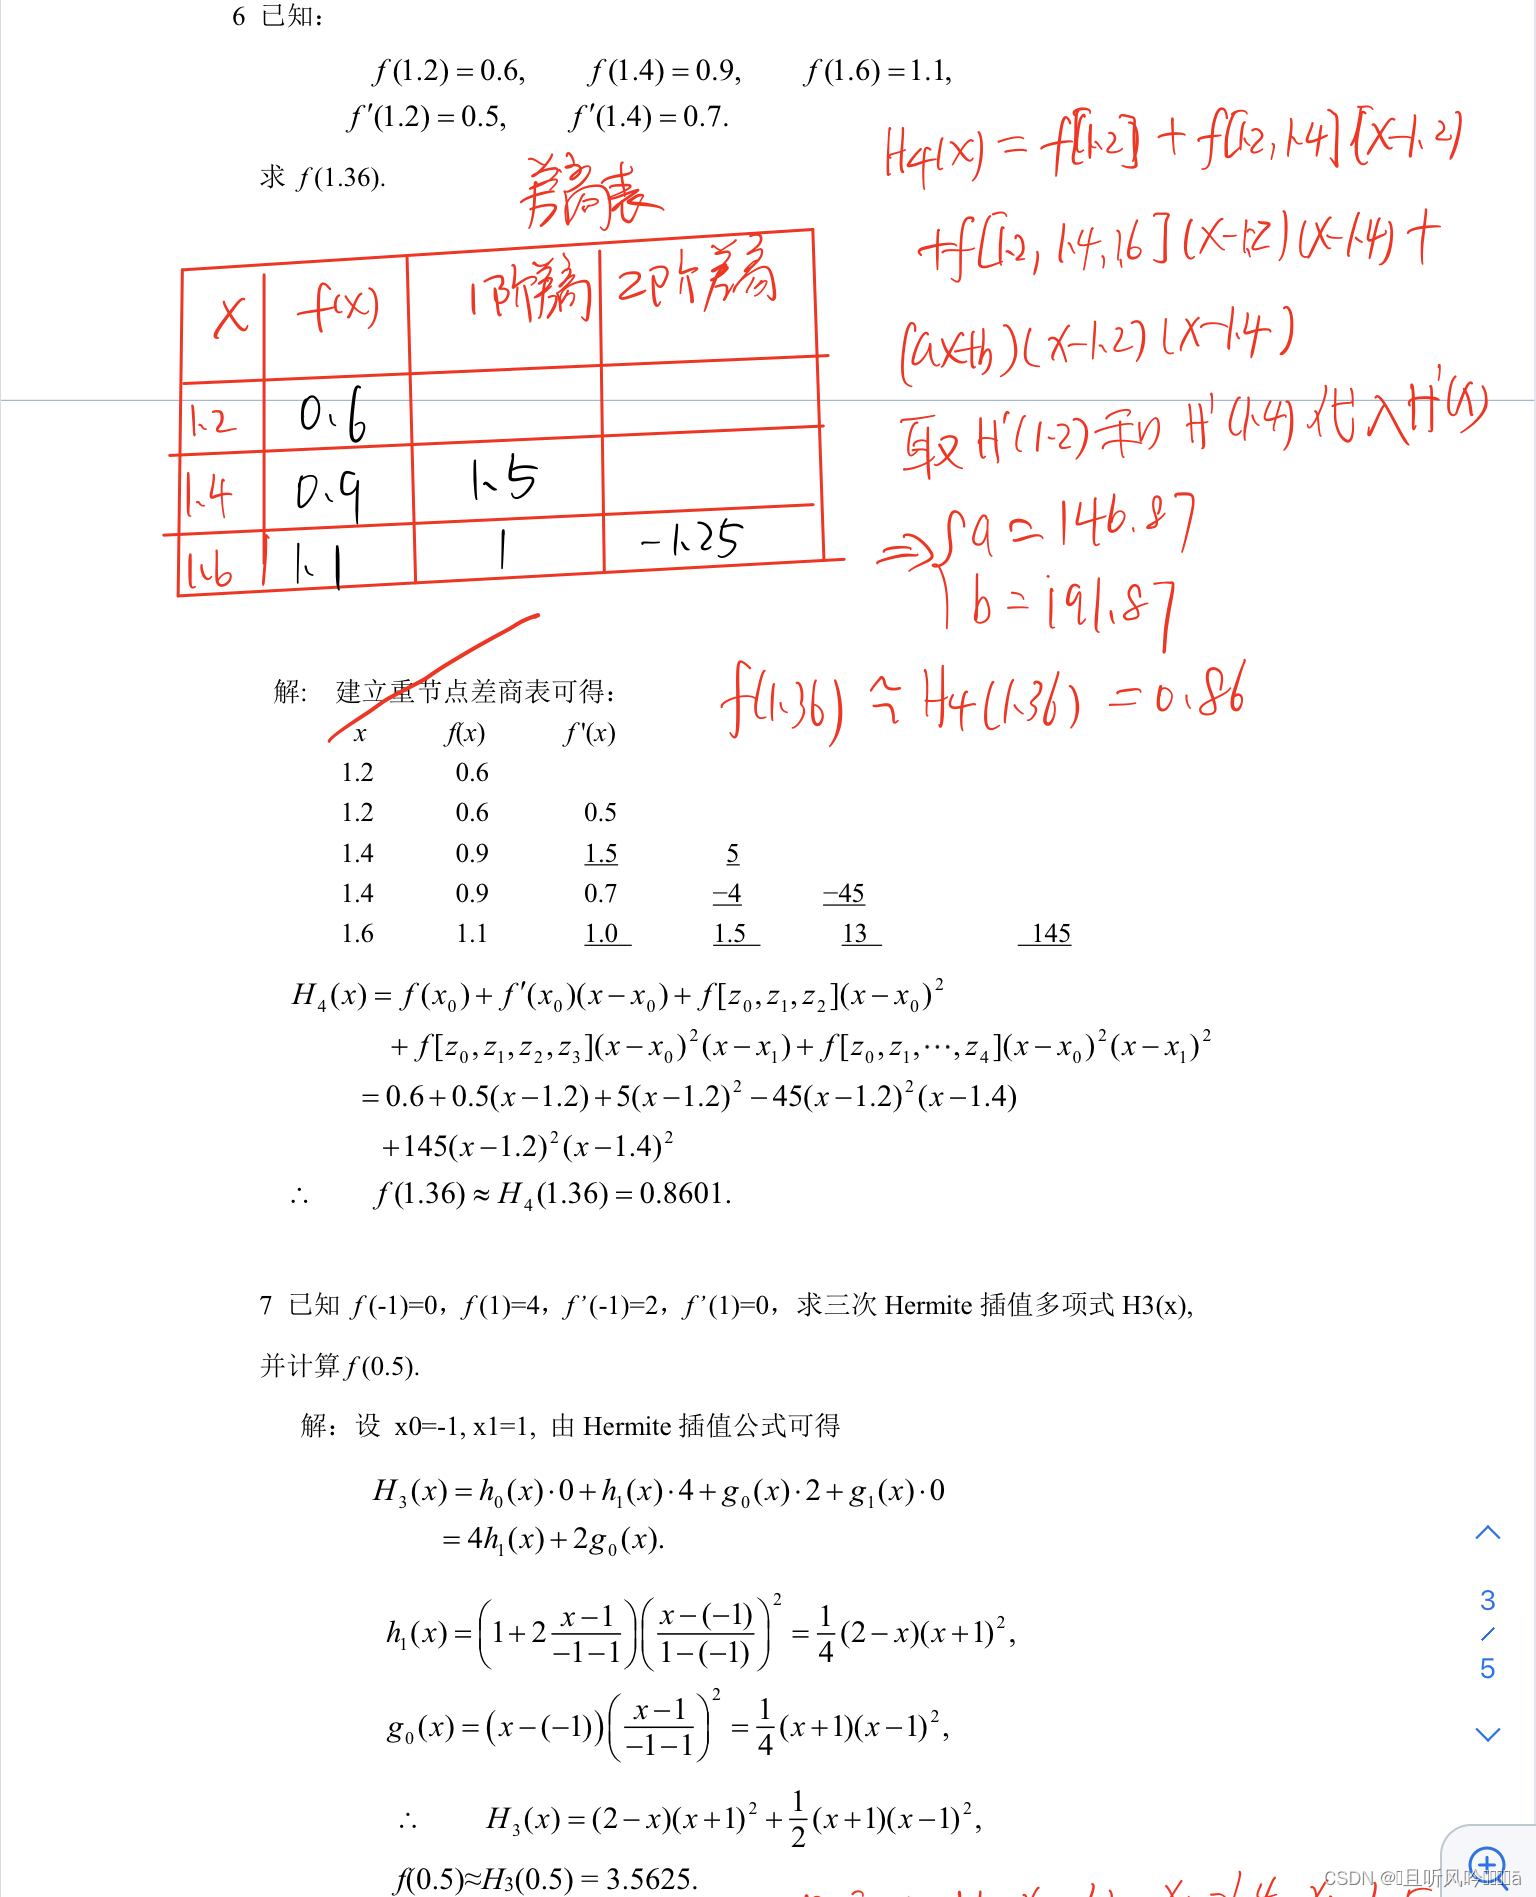 6 已知：
f(1.2) = 0.6, f(1.4) = 0.9, f(1.6) = 1.1,
f′(1.2) = 0.5, f′(1.4) = 0.7.
求 f(1.36).
差商表
x f(x) 1阶差商 2阶差商
1.2 0.6
1.4 0.9 1.5
1.6 1.1 1 -1.25
H4(x) = f[1.2] + f[1.2, 1.4](x-1.2)
+f[1.2, 1.4, 1.6](x-1.2)(x-1.4)+
(ax+b)(x-1.2)(x-1.4)
取 H'(1.2) 和 H'(1.4) 代入 H'(x)
⇒ { a = 146.87
b = 191.87
f(1.36) ≈ H4(1.36) = 0.86
解： 建立重节点差商表可得：
x f(x) f'(x)
1.2 0.6
1.2 0.6 0.5
1.4 0.9 1.5 5
1.4 0.9 0.7 −4 −45
1.6 1.1 1.0 1.5 13 145
H₄(x) = f(x₀) + f′(x₀)(x − x₀) + f[z₀, z₁, z₂](x − x₀)²
+ f[z₀, z₁, z₂, z₃](x − x₀)²(x − x₁) + f[z₀, z₁, ⋯, z₄](x − x₀)²(x − x₁)²
= 0.6 + 0.5(x − 1.2) + 5(x − 1.2)² − 45(x − 1.2)²(x − 1.4)
+145(x − 1.2)²(x − 1.4)²
∴ f(1.36) ≈ H₄(1.36) = 0.8601.
7 已知 f(-1)=0，f(1)=4，f’(-1)=2，f’(1)=0，求三次 Hermite 插值多项式 H3(x),
并计算 f(0.5).
解：设 x0=-1, x1=1, 由 Hermite 插值公式可得
H₃(x) = h₀(x)·0 + h₁(x)·4 + g₀(x)·2 + g₁(x)·0
= 4h₁(x) + 2g₀(x).
h₁(x) = (1 + 2 (x−1)/(−1−1)) ((x−(−1))/(1−(−1)))² = 1/4 (2 − x)(x + 1)²,
g₀(x) = (x − (−1)) ((x−1)/(−1−1))² = 1/4 (x + 1)(x − 1)²,
∴ H₃(x) = (2 − x)(x + 1)² + 1/2 (x + 1)(x − 1)²,
f(0.5)≈H₃(0.5) = 3.5625.
3
/
5
CSDN @且听风吟